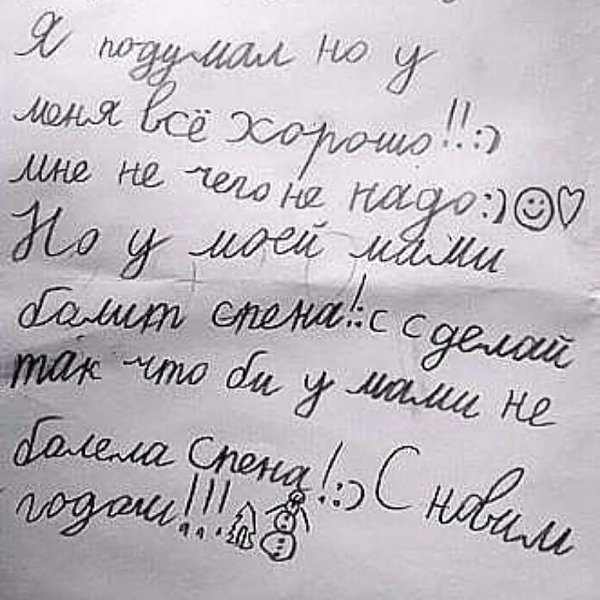 Я подумал но у
меня всё хорошо!!:)
мне не чего не надо:)☺♡
Но у моей мами
балит спена!:с сделай
так что би у мами не
балела Спена!:) С новим
годом!!!